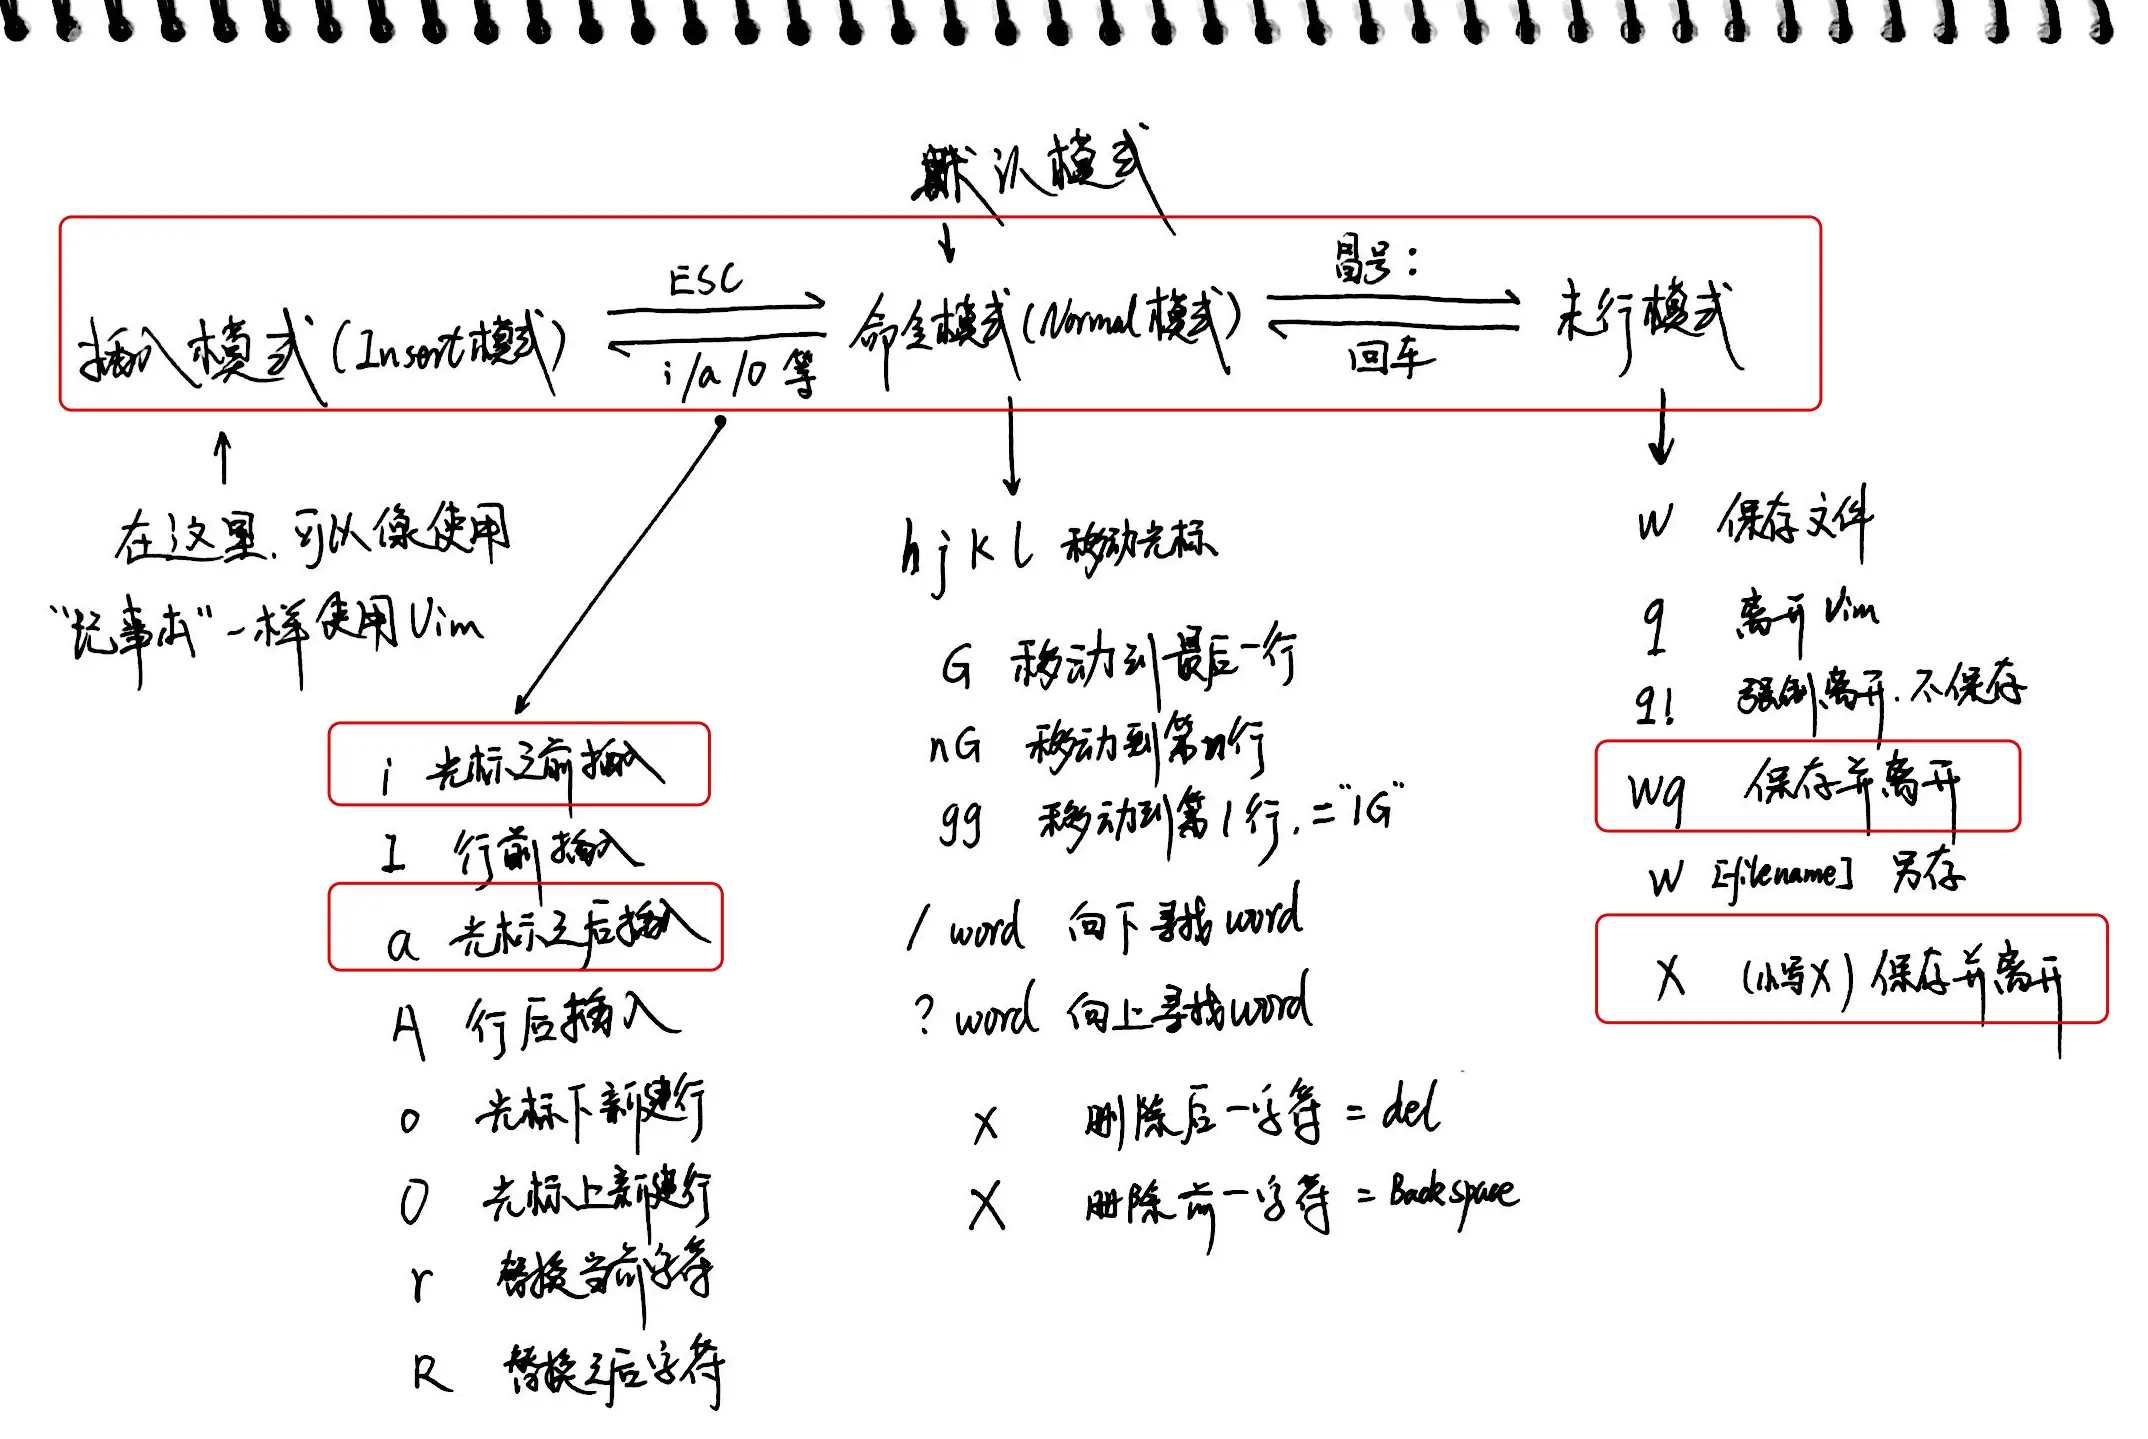 默认模式
插入模式(Insert模式)
ESC
i/a/O 等
命令模式(Normal模式)
冒号:
回车
末行模式
在这里,可以像使用
"记事本"一样使用Vim
i 光标之前插入
I 行前插入
a 光标之后插入
A 行后插入
o 光标下新建行
O 光标上新建行
r 替换当前字符
R 替换之后字符
h j k l 移动光标
G 移动到最后一行
nG 移动到第n行
gg 移动到第1行,="1G"
/ word 向下寻找word
? word 向上寻找word
x 删除后一字符 = del
X 删除前一字符 = Backspace
w 保存文件
q 离开Vim
q! 强制离开,不保存
wq 保存并离开
w [filename] 另存
x (小写x) 保存并离开